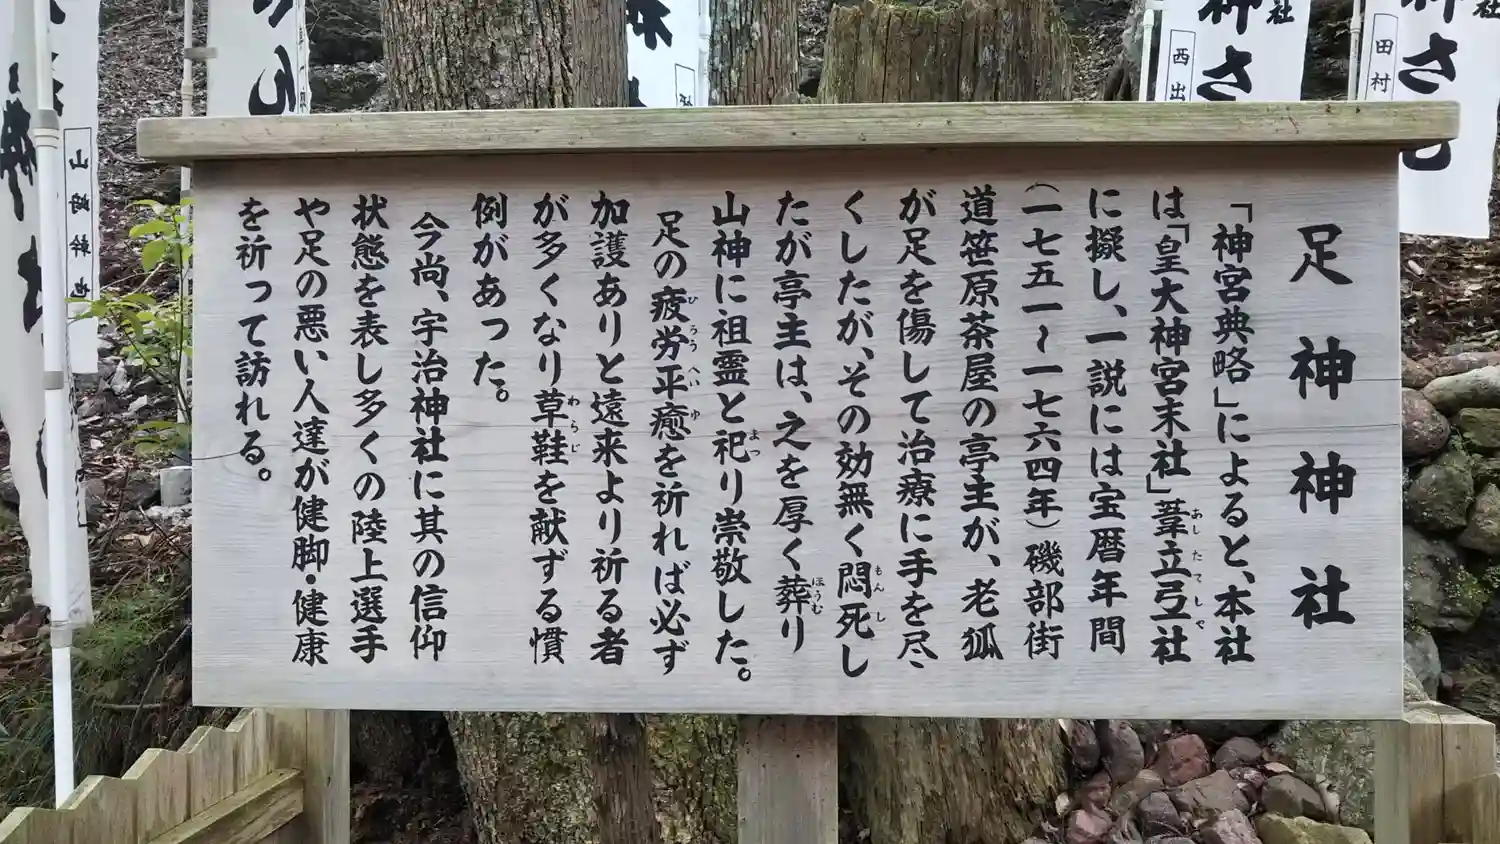 足神神社
「神宮典略」によると、本社
は「皇大神宮末社」葦立弖社
に擬し、一説には宝暦年間
（一七五一～一七六四年）磯部街
道笹原茶屋の亭主が、老狐
が足を傷して治療に手を尽
くしたが、その効無く悶死し
たが亭主は、之を厚く葬り
山神に祖霊と祀り崇敬した。
足の疲労平癒を祈れば必ず
加護ありと遠来より祈る者
が多くなり草鞋を献ずる慣
例があった。
今尚、宇治神社に其の信仰
状態を表し多くの陸上選手
や足の悪い人達が健脚・健康
を祈って訪れる。
あしたてしや
もんし
ほうむ
まつ
ひろうへいゆ
わらじ
山崎幹也
西出
田村
神さ
神さ
社
社